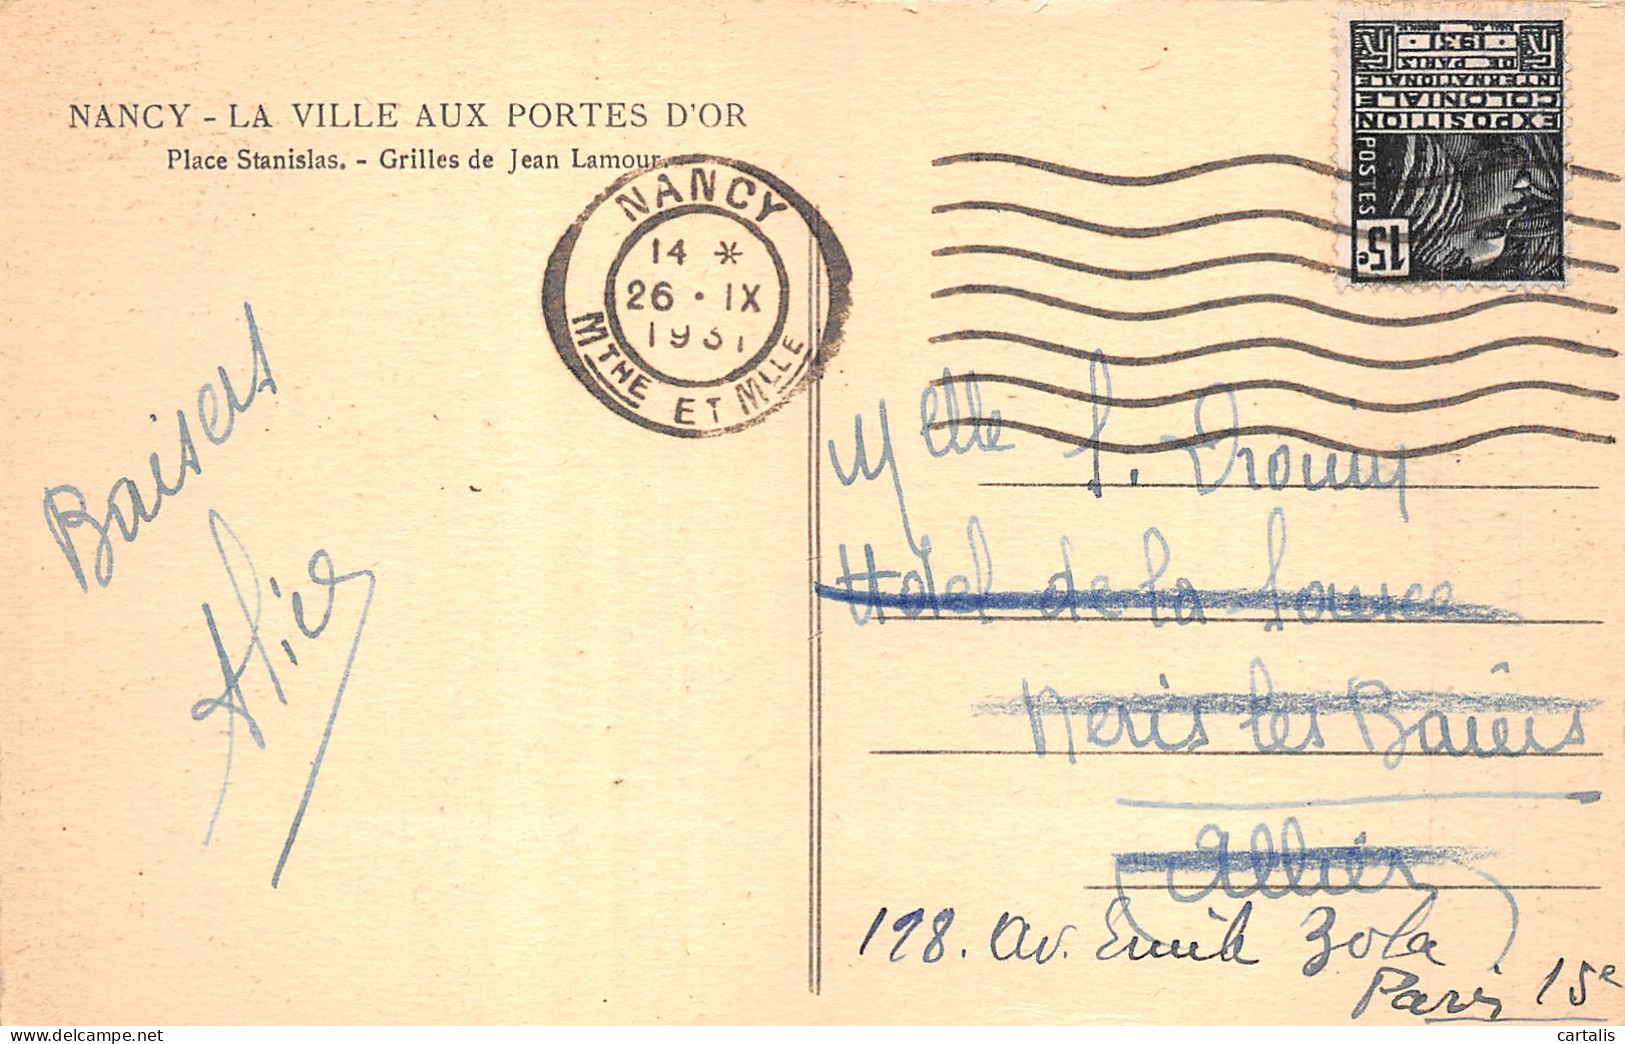 NANCY - LA VILLE AUX PORTES D'OR
Place Stanislas. - Grilles de Jean Lamour.
NANCY
14 *
26 · IX
1931
MTHE ET MLLE
EXPOSITION
COLONIALE
INTERNATIONALE
DE PARIS
· 1931 ·
POSTES
15c
Baisers
Alice
Mlle S. Drouin
Hotel de la Source
Neris les Bains
Allier
198. Av. Emile Zola
Paris 15e
cartalis